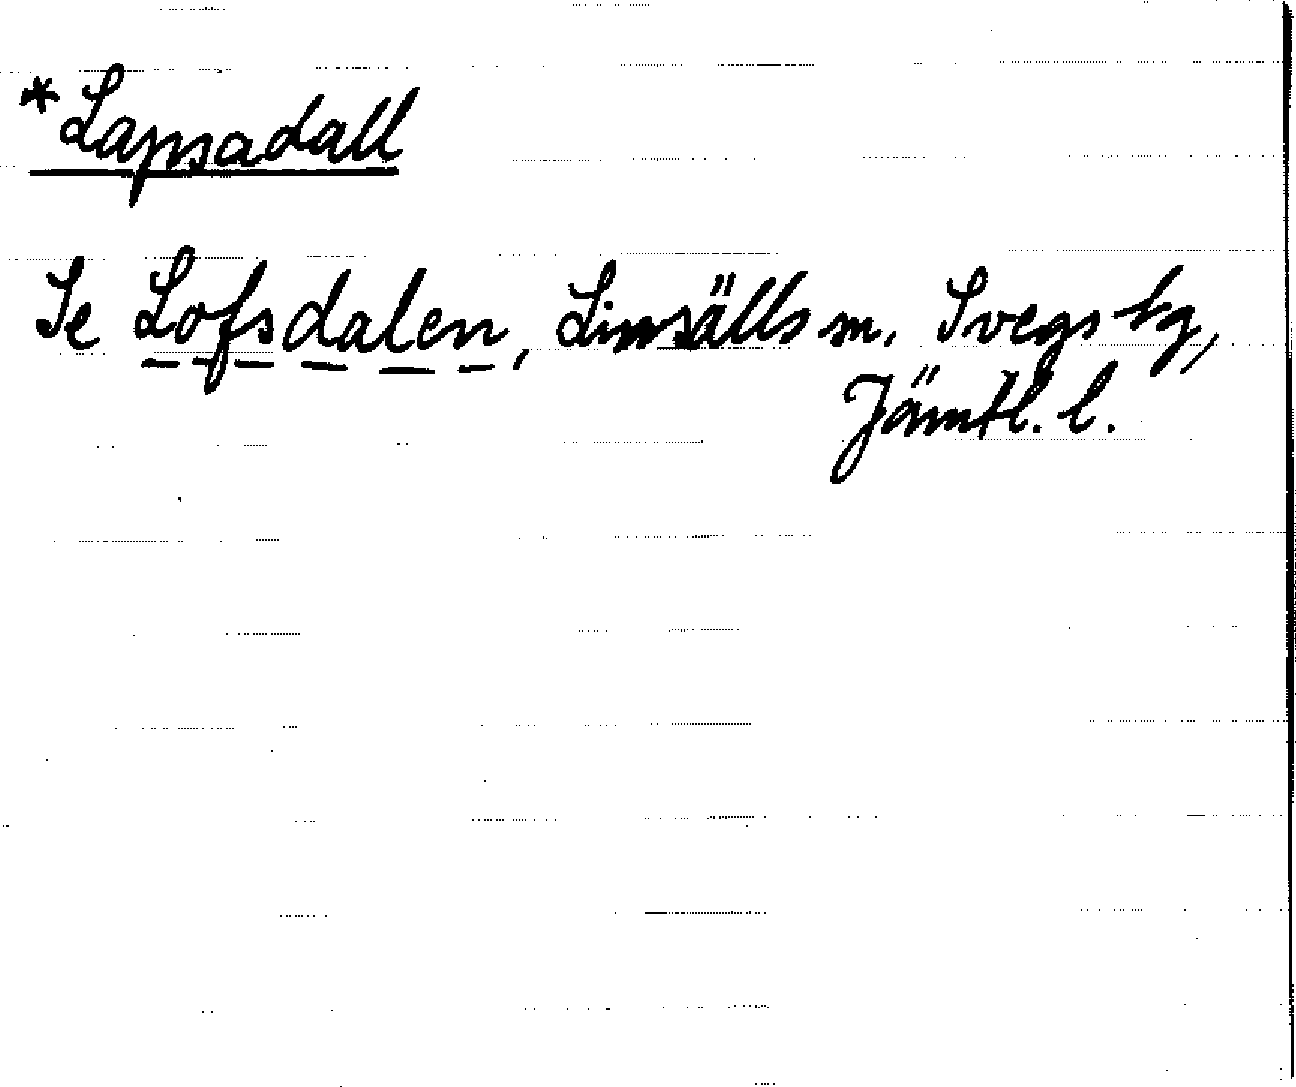 *Lapsadall
Se Lofsdalen, Linsälls sn, Svegs tg,
Jämtl. l.